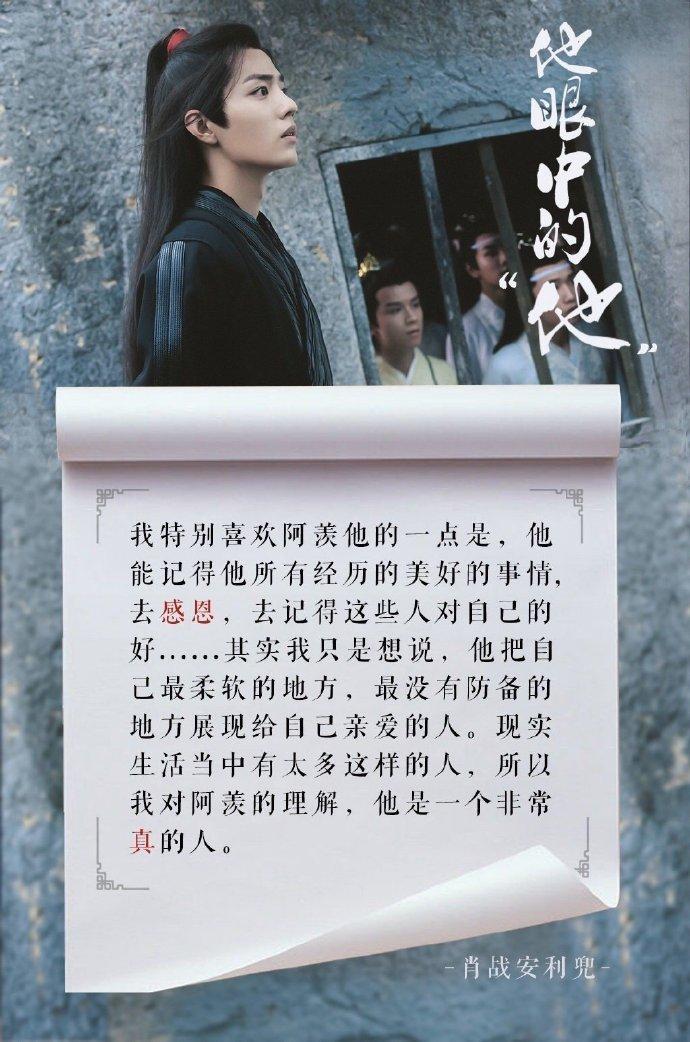 他眼中的
“他”
我特别喜欢阿羡他的一点是，他
能记得他所有经历的美好的事情，
去感恩，去记得这些人对自己的
好......其实我只是想说，他把自
己最柔软的地方，最没有防备的
地方展现给自己亲爱的人。现实
生活当中有太多这样的人，所以
我对阿羡的理解，他是一个非常
真的人。
-肖战安利兜-